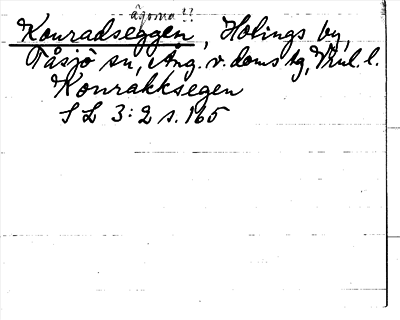 ägorna!!
Konradseggen, Holings by,
Tåsjö sn, Ång. v. doms tg, Vnl. l.
Konrakksegen
S L 3:2 s. 165